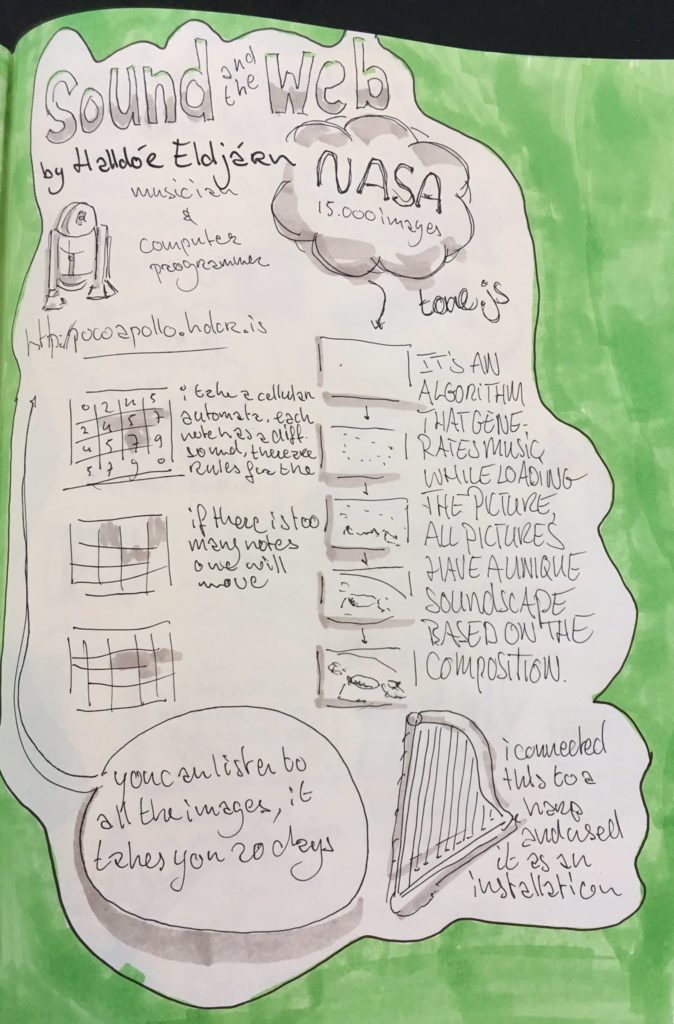 Sound and the Web
by Halldóe Eldjárn
musician
&
computer
programmer
NASA
15.000 images
tone.js
http://poco apollo.hdor.is
0 2 4 5
2 4 5 7
4 5 7 9
5 7 9 0
i take a cellular
automata, each
note has a diff.
sound, there are
rules for the
if there is too
many notes
one will
move
IT'S AN
ALGORITHM
THAT GENE-
RATES MUSIC
WHILE LOADING
THE PICTURE,
ALL PICTURES
HAVE A UNIQUE
SOUNDSCAPE
BASED ON THE
COMPOSITION.
you can listen to
all the images, it
takes you 20 days
i connected
this to a
harp
and used
it as an
installation